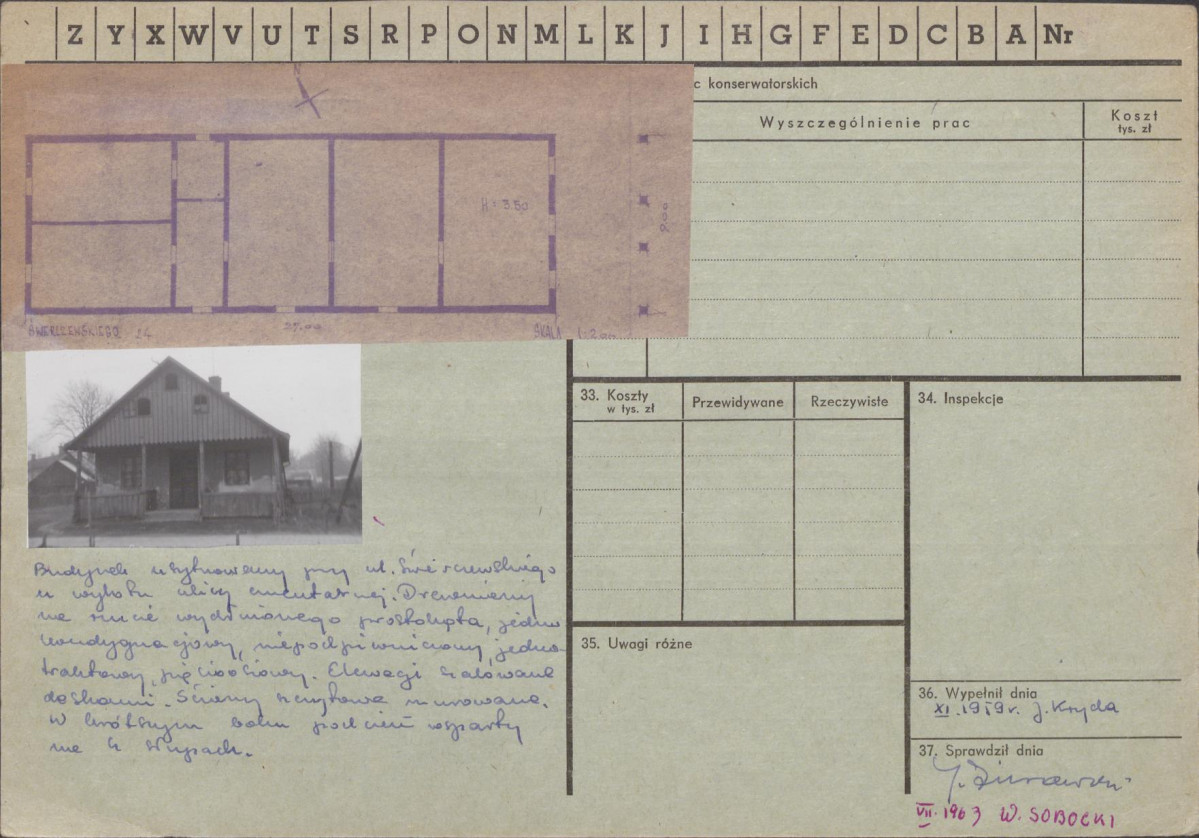 Z Y X W V U T S R P O N M L K J I H G F E D C B A Nr
c konserwatorskich
Wyszczególnienie prac
Koszt
tys. zł
N
H = 3.50
9.00
ŚWIERCZEWSKIEGO 24
25.00
SKALA 1:200
33. Koszty
w tys. zł
Przewidywane
Rzeczywiste
34. Inspekcje
Budynek usytuowany przy ul. Świerczewskiego
u wylotu ulicy cmentarnej. Drewniany
na rzucie wydłużonego prostokąta, jedno
kondygnacjowy, niepodpiwniczony, jedno-
traktowy, pięcioosiowy. Elewacje szalowane
deskami. Ściany szczytowe murowane.
W krótszym boku podcień wsparty
na 4 słupach.
35. Uwagi różne
36. Wypełnił dnia
XI.1959r. J. Kryda
37. Sprawdził dnia
VII.1963 W. SOBOCKI